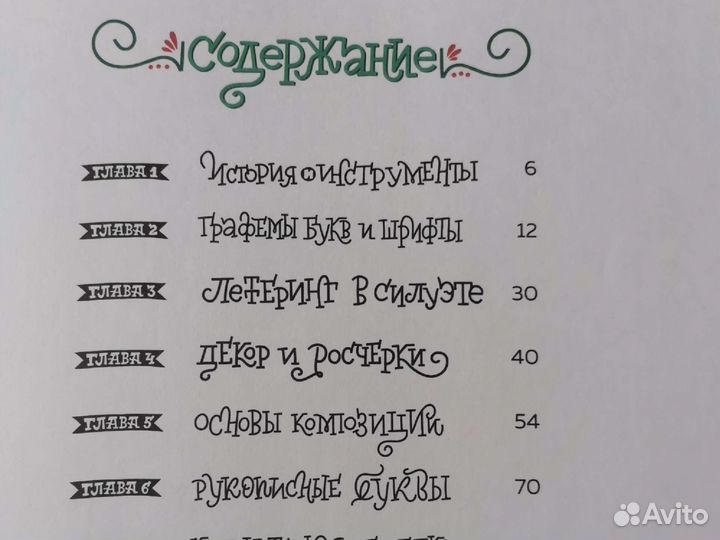 Содержание
ГЛАВА 1 История и инструменты 6
ГЛАВА 2 Графемы букв и шрифты 12
ГЛАВА 3 Леттеринг в силуэте 30
ГЛАВА 4 Декор и росчерки 40
ГЛАВА 5 Основы композиции 54
ГЛАВА 6 Рукописные буквы 70
Avito